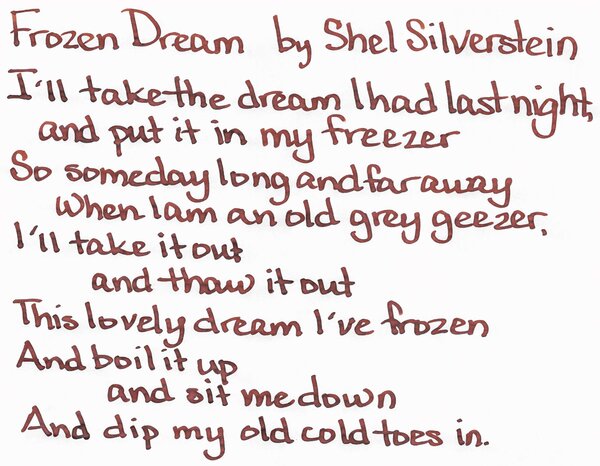 Frozen Dream by Shel Silverstein
I'll take the dream I had last night,
and put it in my freezer
So someday long and far away
When I am an old grey geezer,
I'll take it out
and thaw it out
This lovely dream I've frozen
And boil it up
and sit me down
And dip my old cold toes in.